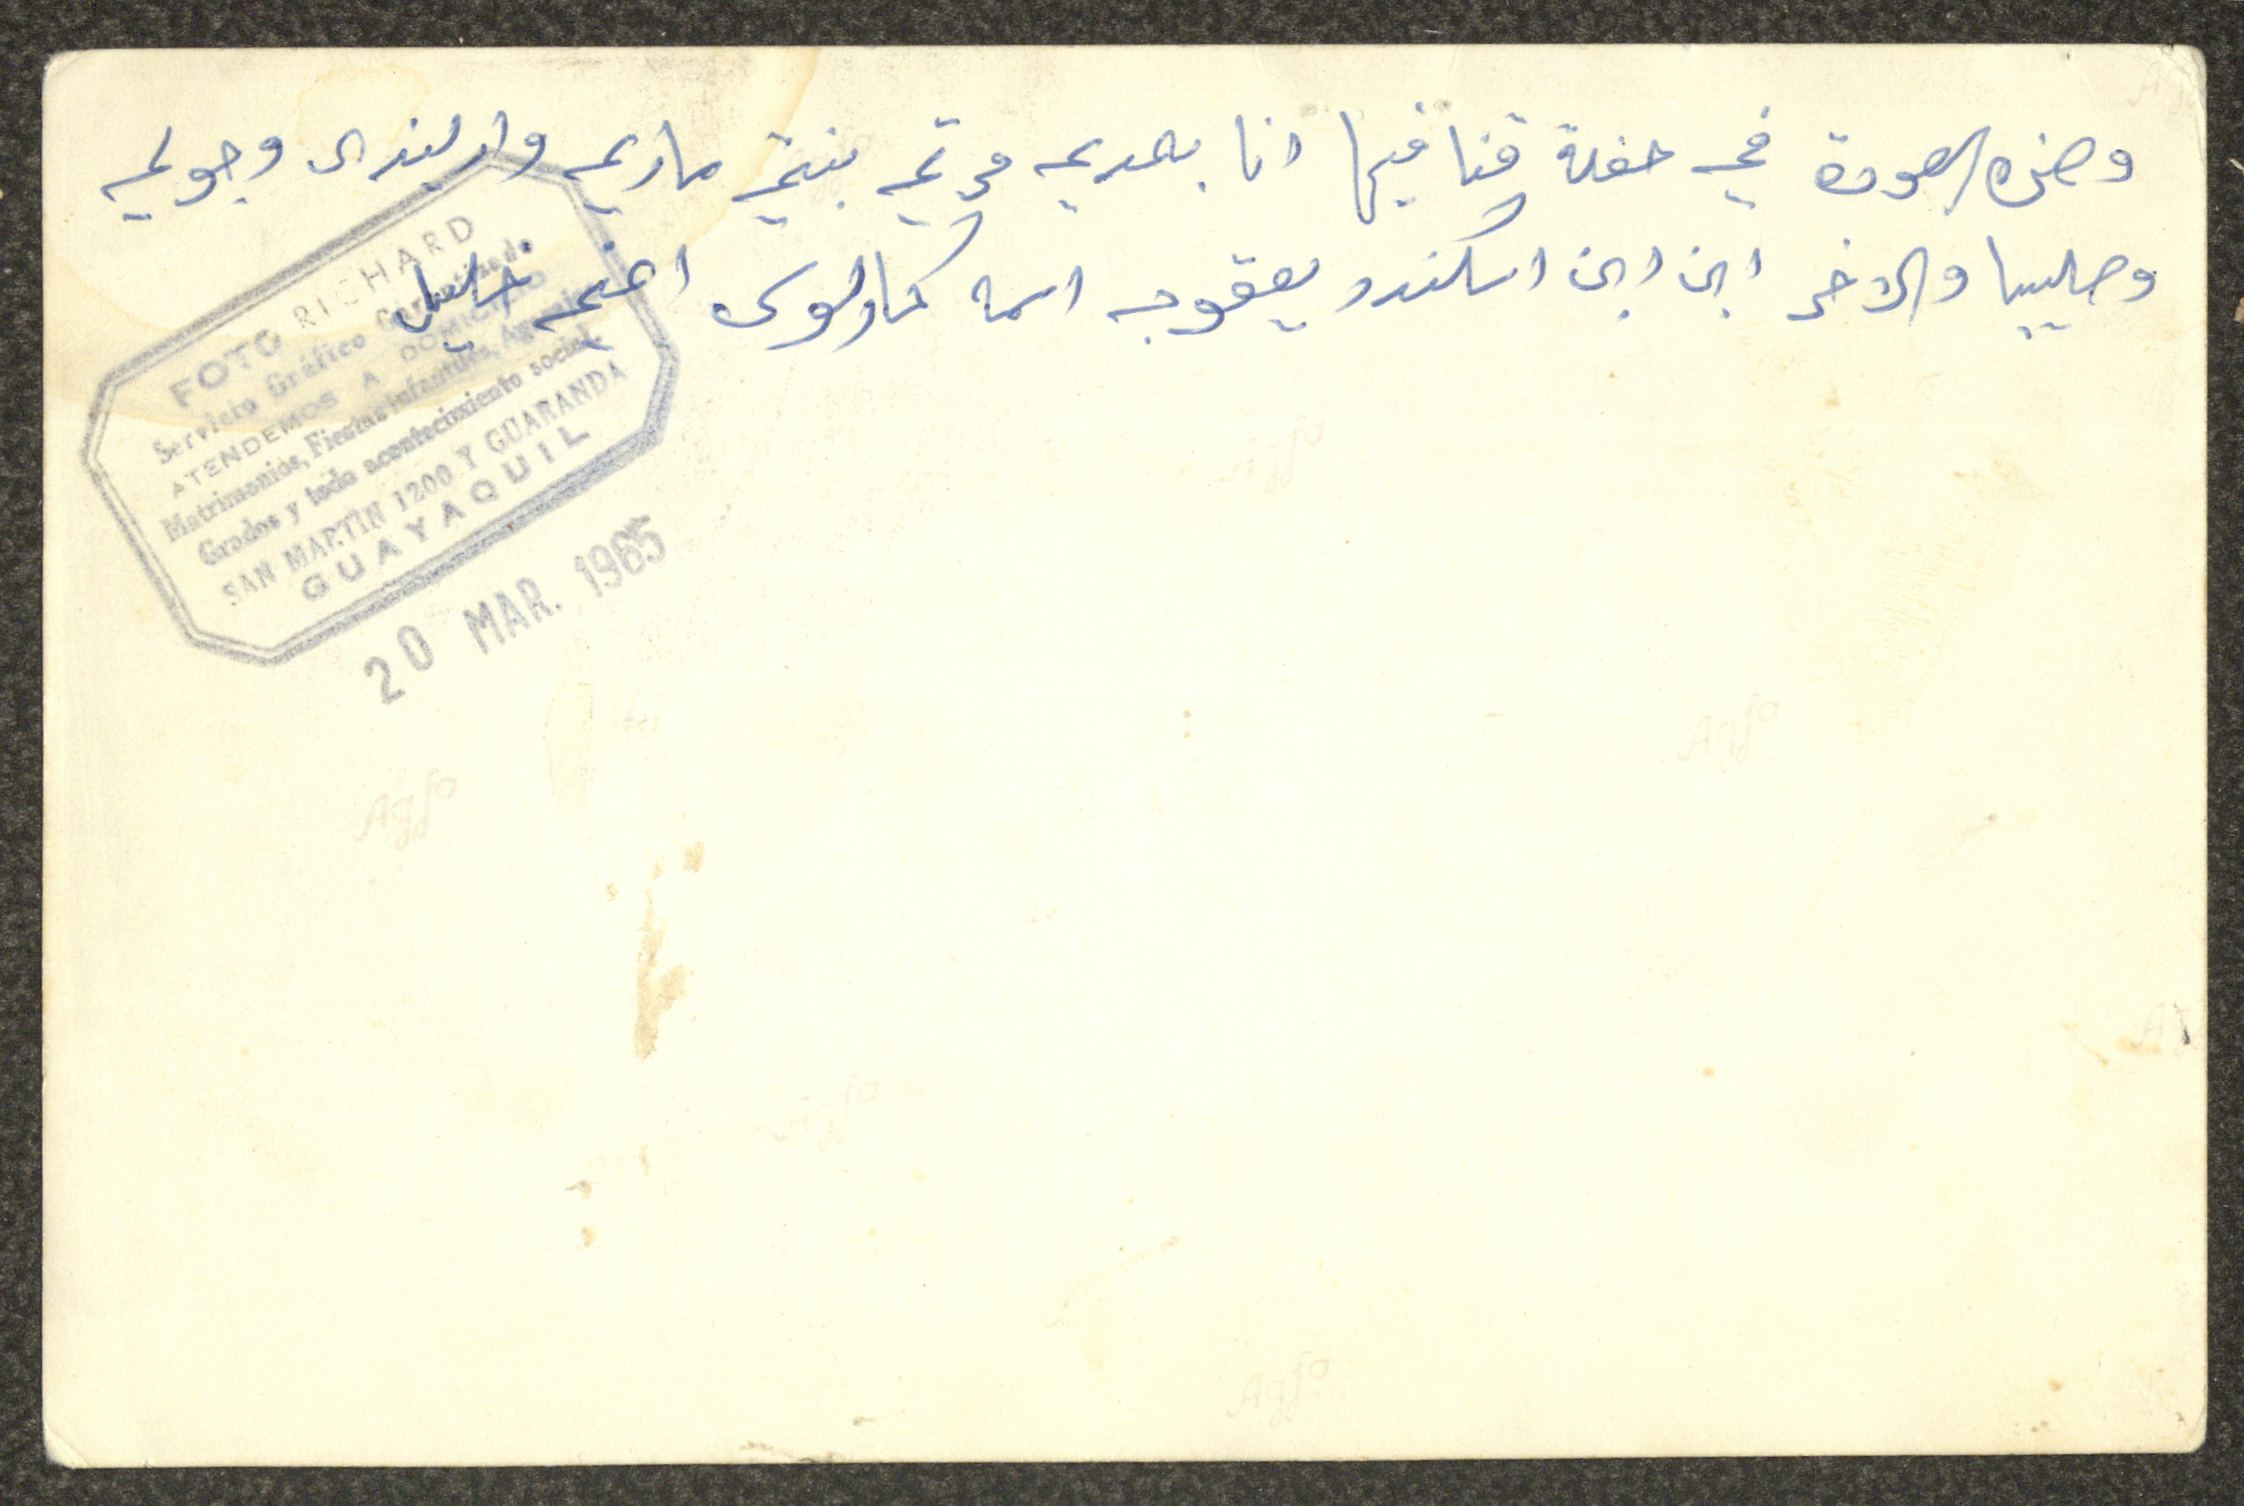 وهذه الصورة في حفلة كنا فيها انا بعديه مرتي بنتي ماريه وارليندا وجولي
وصليبا والاخر ابن ابن اسكندر يعقوب اسمه كارلوس اخي خليل
FOTO RICHARD
Servicio Gráfico Garantizado
ATENDEMOS A DOMICILIO
Matrimonios, Fiestas Infantiles,
Grados y todo acontecimiento social
SAN MARTIN 1200 Y GUARANDA
GUAYAQUIL
20 MAR. 1965
Agfa
Agfa
Agfa
Agfa
Agfa